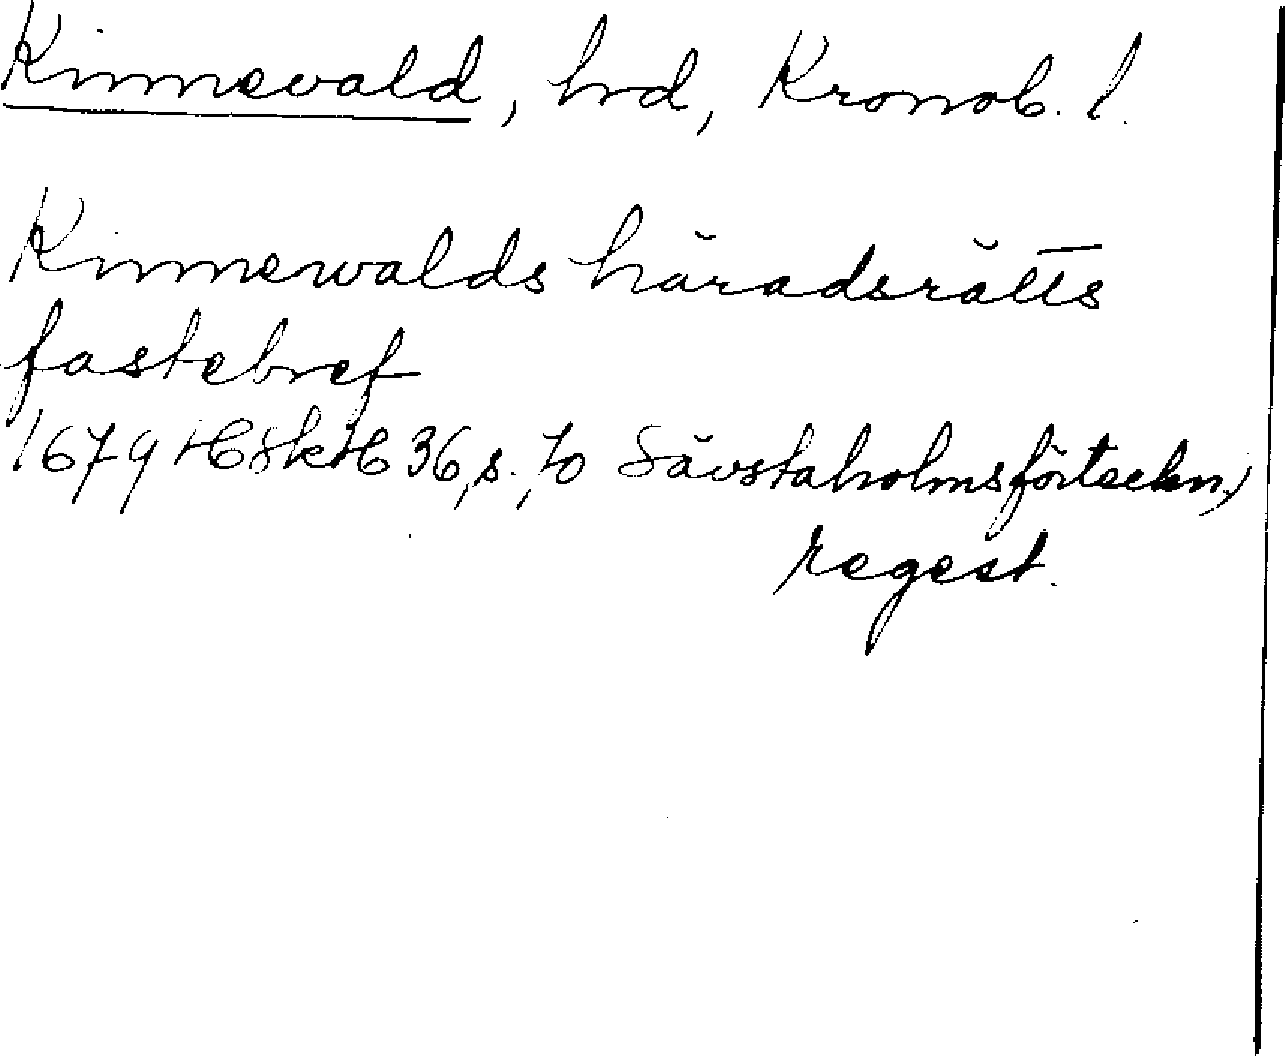 Kinnevald, hrd, Kronob. l.
Kinnewalds häradsrätts
fastebref
1679 HSkH 36, s. 70 Sävstaholmsförteckn.,
regest.